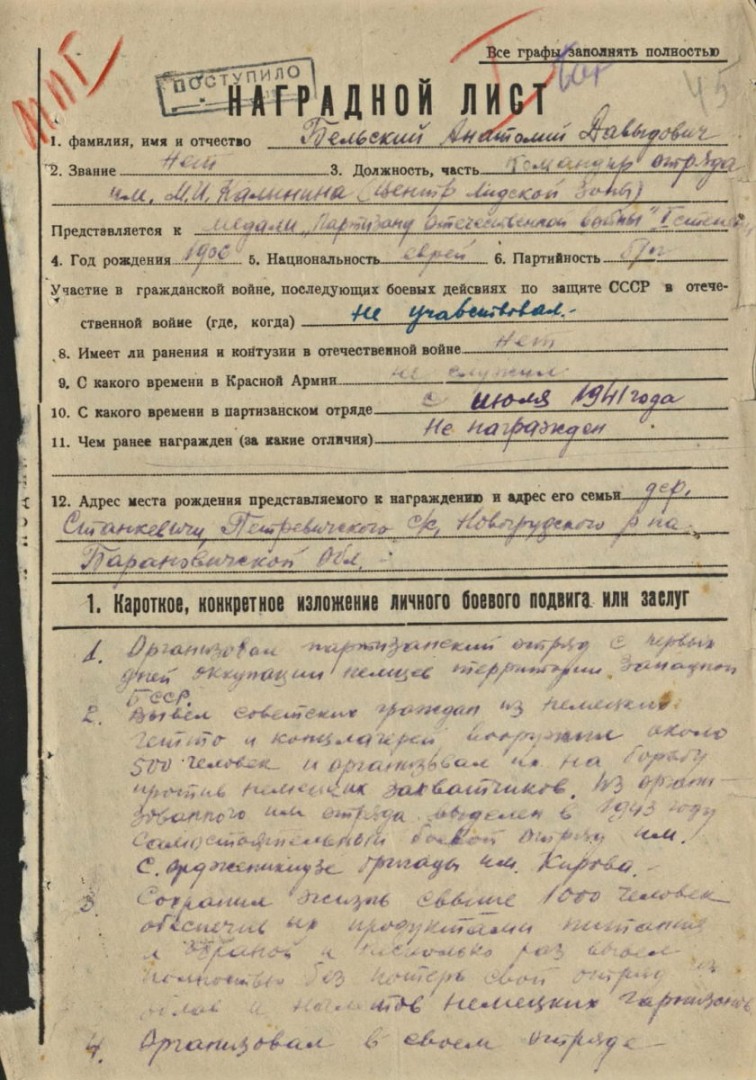 Все графы заполнять полностью
45
ПОСТУПИЛО
НАГРАДНОЙ ЛИСТ
1. фамилия, имя и отчество Бельский Анатолий Давыдович
2. Звание Нет 3. Должность, часть Командир отряда
им. М.И. Калинина (Центр Лидской Зоны)
Представляется к медали „Партизану Отечественной войны" I степени
4. Год рождения 1906 5. Национальность еврей 6. Партийность б/п
Участие в гражданской войне, последующих боевых действиях по защите СССР в отече-
ственной войне (где, когда) Не учавствовал.-
8. Имеет ли ранения и контузии в отечественной войне Нет
9. С какого времени в Красной Армии не служил
10. С какого времени в партизанском отряде с июля 1941 года
11. Чем ранее награжден (за какие отличия) Не награжден
12. Адрес места рождения представляемого к награждению и адрес его семьи дер.
Станкевичи, Петревичского с/с, Новогрудского р-на
Барановичской Обл. -
1. Короткое, конкретное изложение личного боевого подвига или заслуг
1. Организовал партизанский отряд с первых
дней оккупации немцев территории Западной
БССР.
2. Вывел советских граждан из немецких
гетто и концлагерей вооружил около
500 человек и организывал их на борьбу
против немецких захватчиков. Из органи-
зованного им отряда выделен в 1943 году
самостоятельный боевой отряд им.
С. Орджоникидзе бригады им. Кирова. -
3 Сохранил жизнь свыше 1000 человек
обеспечив их продуктами питания
и охраной и несколько раз вывел
полностью без потерь свой отряд из
облав и налетов немецких гарнизонов
4. Организовал в своем отряде